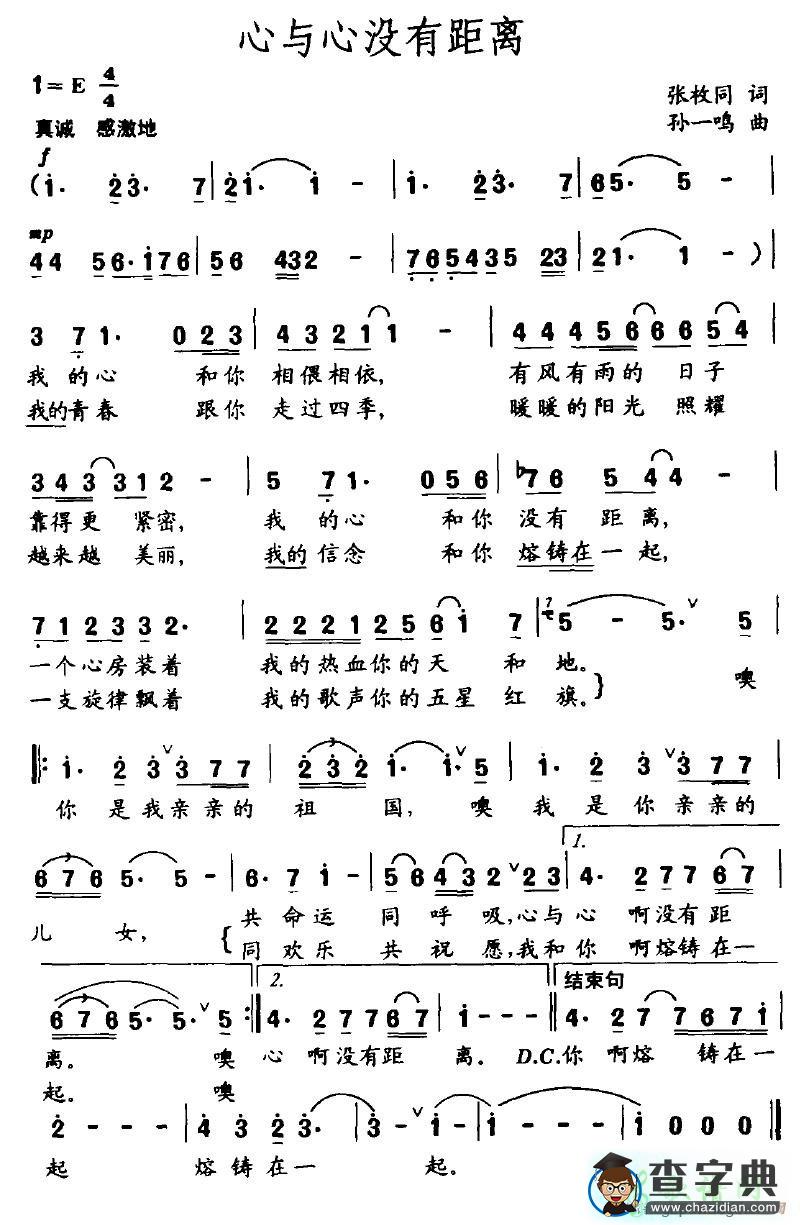 心与心没有距离
1=E 4/4
张枚同 词
真诚 感激地
孙一鸣 曲
f
(i· 2 3· 7 | 2 i· i - | i· 2 3· 7 | 6 5· 5 - |
mp
4 4 5 6· i 7 6 | 5 6 4 3 2 - | 7 6 5 4 3 5 2 3 | 2 1· 1 - ) |
3 7 1· 0 2 3 | 4 3 2 1 1 - | 4 4 4 5 6 6 6 5 4 |
我 的 心 和 你 相 偎 相 依, 有 风 有 雨 的 日 子
我的青春 跟你 走过四季, 暖暖的阳光 照耀
3 4 3 3 1 2 - | 5 7 1· 0 5 6 | ♭7 6 5 4 4 - |
靠得更 紧密, 我 的心 和你 没有 距离,
越来越 美丽, 我的信念 和你 熔铸在一起,
7 1 2 3 3 2· | 2 2 2 1 2 5 2 6 i 7 | 5 - 5· ∨ 5 |
一个心房装着 我的热血你的天 和地。
一支旋律飘着 我的歌声你的五星红旗。} 噢
i· 2 3 ∨ 3 7 7 | 2 3 2 i· i· ∨ 5 | i· 2 3 ∨ 3 7 7 |
你 是我亲亲的 祖 国, 噢 我 是 你 亲亲的
1.
6 7 6 5· 5 - | 6· 7 i - | 5 6 4 3 2 ∨ 2 3 | 4· 2 7 7 6 7 |
儿 女, { 共命运 同呼吸,心与心 啊没有距
同欢乐 共祝愿,我和你 啊熔铸在一
2. 结束句
6 7 6 5· 5· ∨ 5 :| 4· 2 7 7 6 7 | i - - - | 4· 2 7 7 6 7 i |
离。 噢 心 啊没有距 离。 D.C.你 啊熔 铸在一
起。 噢
2 - - - | 4 3 2 3· | 3 - i ∨ 2 | i - - - | i 0 0 0 ‖
起 熔铸在一 起。
查字典
www.chazidian.com